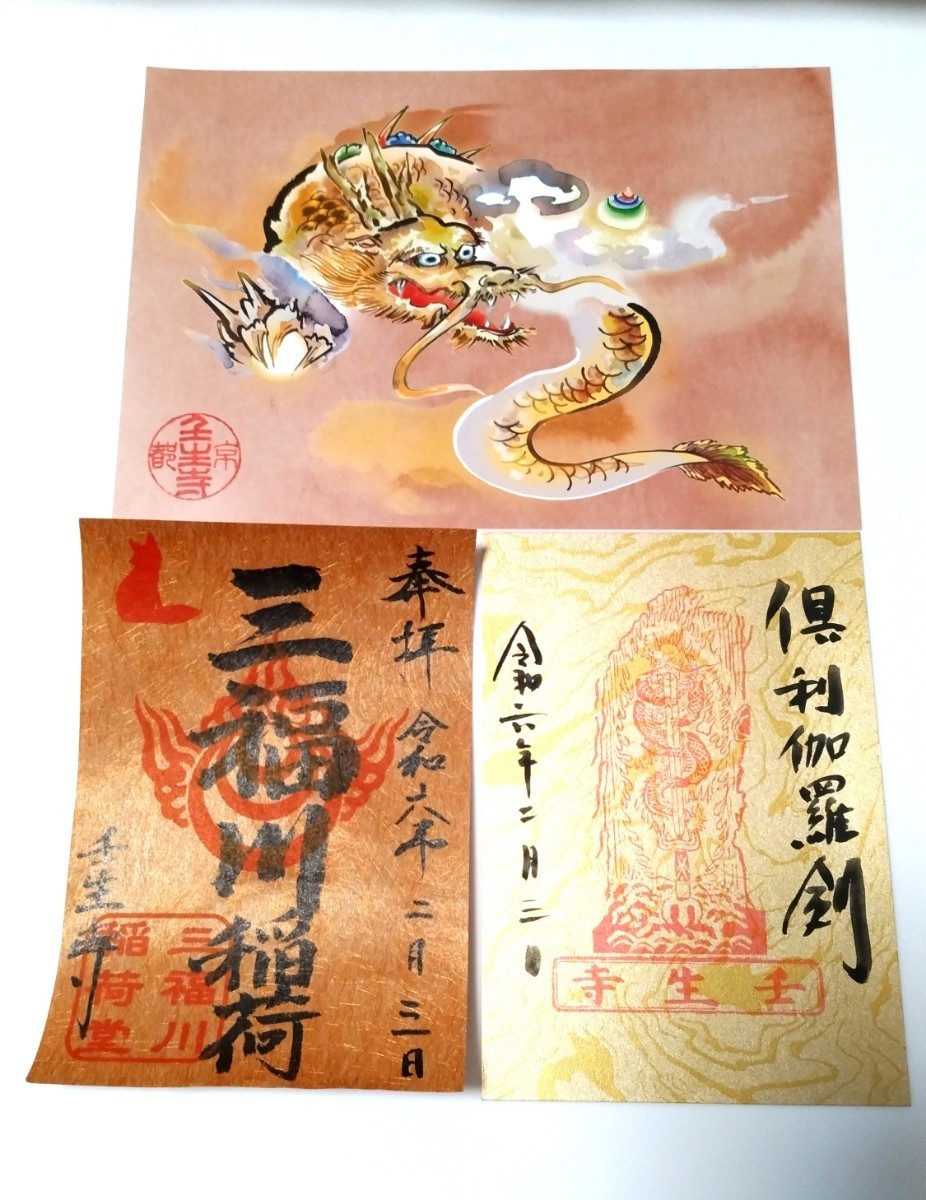 京都
壬生寺
奉拝 令和六年 二月 三日
三福川稲荷
壬生寺
三福川
稲荷堂
倶利伽羅剣
令和六年二月三日
壬生寺